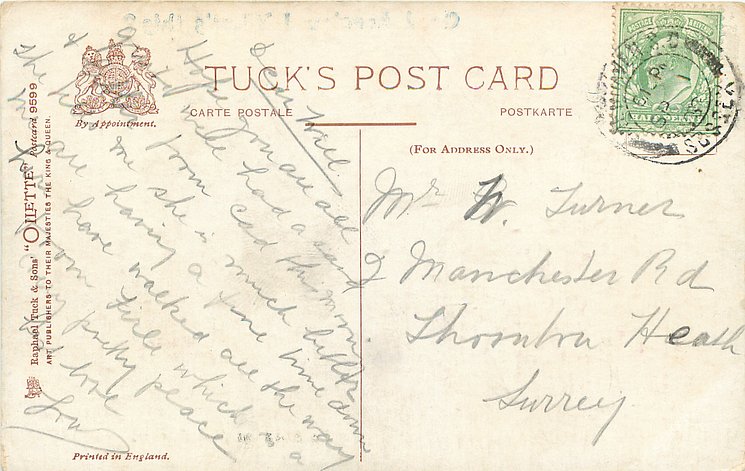 TUCK'S POST CARD
CARTE POSTALE
POSTKARTE
By Appointment.
(FOR ADDRESS ONLY.)
Raphael Tuck & Sons' "OILETTE" Postcard 9599
ART PUBLISHERS TO THEIR MAJESTIES THE KING & QUEEN.
Printed in England.
POSTAGE
HALFPENNY
SUSSEX
Mr W. Turner
2 Manchester Rd
Thornton Heath
Surrey
Dear Will
Hope you are all
well had a
card from this morn
she is much better
are having a fine time down
here have walked all the way
from Firle which is a
very pretty peace
love